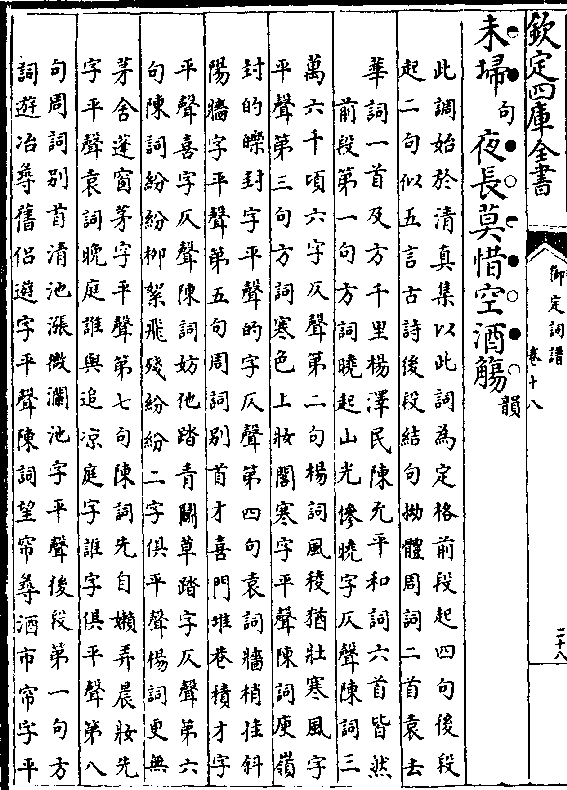 欽定四庫全書
御定詞譜
卷十八
二十八
未掃句夜長莫惜空酒觴韻
此調始於清真集以此詞為定格前段起四句後段
起二句似五言古詩後段結句拗體周詞二首袁去
華詞一首及方千里楊澤民陳允平和詞六首皆然
前段第一句方詞曉起山光慘曉字仄聲陳詞三
萬六千頃六字仄聲第二句楊詞風稜猶壯寒風字
平聲第三句方詞寒色上妝閣寒字平聲陳詞庾嶺
封的皪封字平聲的字仄聲第四句袁詞牆梢挂斜
陽牆字平聲第五句周詞別首才喜門堆巷積才字
平聲喜字仄聲陳詞妨他踏青鬭草踏字仄聲第六
句陳詞紛紛栁絮飛殘紛紛二字俱平聲楊詞更無
茅舍蓬窗茅字平聲第七句陳詞先自嬾弄晨妝先
字平聲袁詞晚庭誰與追凉庭字誰字俱平聲第八
句周詞別首清池漲微瀾池字平聲後段第一句方
詞遊冶尋舊侣遊字平聲陳詞望帘尋酒市帘字平